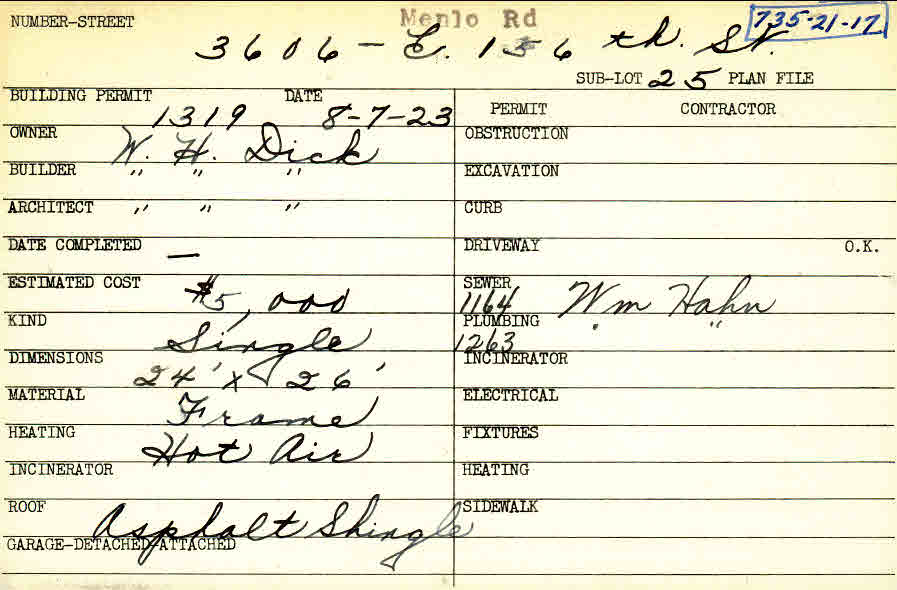 Menlo Rd
735-21-17
NUMBER-STREET
3606 - E. 156 th. St.
SUB-LOT 25 PLAN FILE
BUILDING PERMIT 1319 DATE 8-7-23
OWNER W. H. Dick
BUILDER " " "
ARCHITECT " " "
DATE COMPLETED —
ESTIMATED COST $5,000
KIND Single
DIMENSIONS 24' x 26'
MATERIAL Frame
HEATING Hot Air
INCINERATOR
ROOF Asphalt Shingle
GARAGE-DETACHED-ATTACHED
PERMIT CONTRACTOR
OBSTRUCTION
EXCAVATION
CURB
DRIVEWAY O.K.
SEWER 1164 Wm Hahn
PLUMBING 1263 " "
INCINERATOR
ELECTRICAL
FIXTURES
HEATING
SIDEWALK